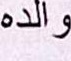 والده